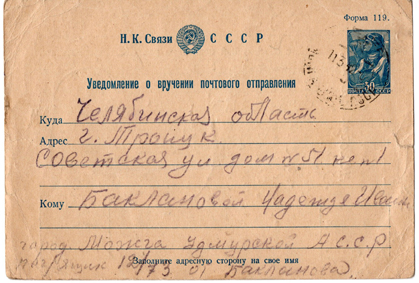 Форма 119.
Н. К. Связи СССР
Уведомление о вручении почтового отправления
Куда Челябинская область
Адрес г. Троицк
Советская ул дом № 51 кв 1
Кому Баклановой Надежде Иван
город Можга Удмурской А.С.С.Р
Заполните адресную сторону на свое имя
173 от Бакланова